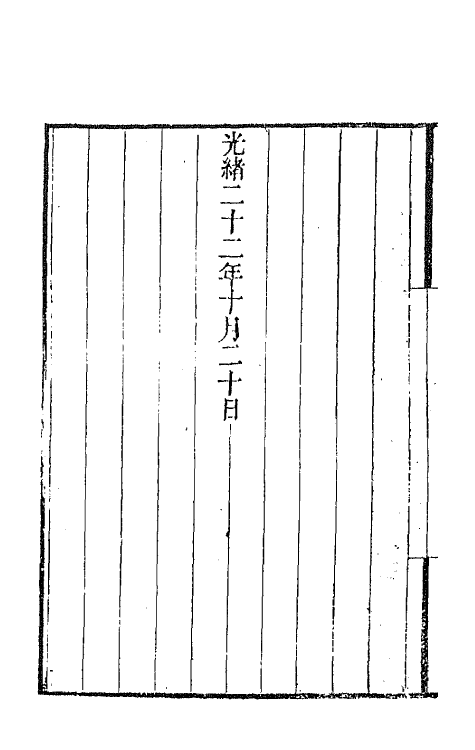 光緒二十二年十月二十日